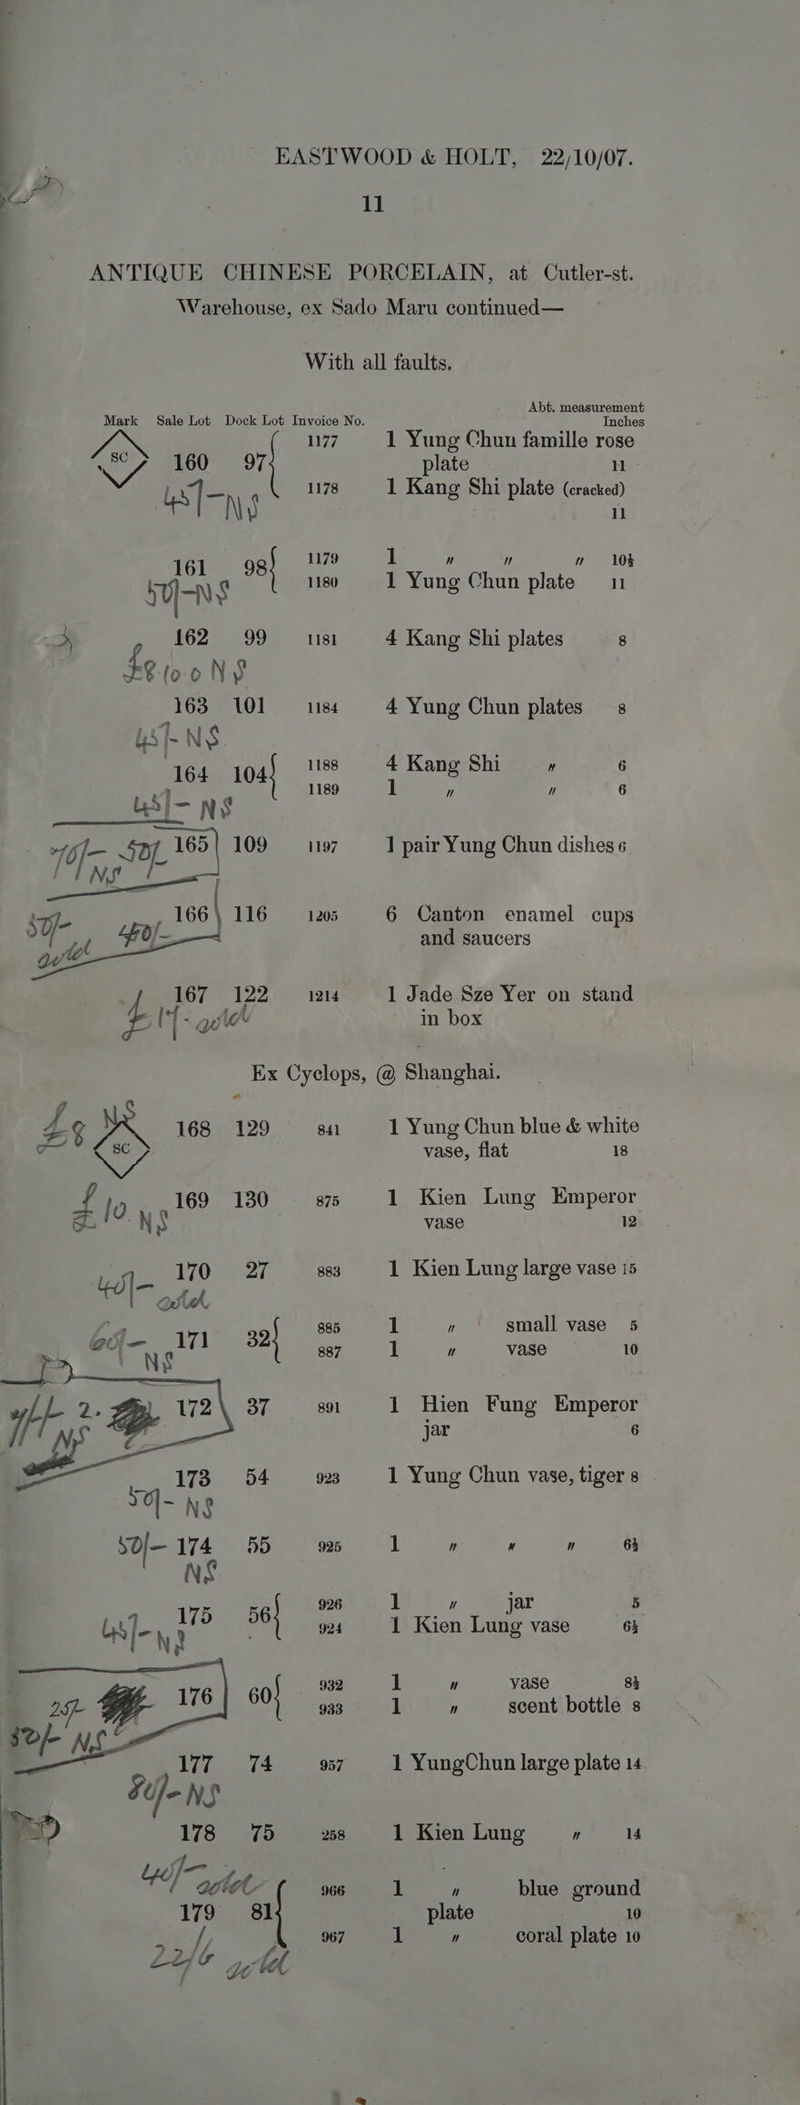 EASTWOOD & HOLT, 22/10/07.
11
ANTIQUE CHINESE PORCELAIN, at Cutler-st.
Warehouse, ex Sado Maru continued—
With all faults.
Abt. measurement
Mark Sale Lot Dock Lot Invoice No. Inches
1177 1 Yung Chun famille rose
SC 160 97 plate 11
1178 1 Kang Shi plate (cracked)
45/- NS 11
1179 1 " " " 10½
161 98
1180 1 Yung Chun plate 11
50/- NS
162 99 1181 4 Kang Shi plates 8
£8.10.0 NS
163 101 1184 4 Yung Chun plates 8
45/- NS
1188 4 Kang Shi " 6
164 104
1189 1 " " 6
45/- NS
70/- 50/- 165 109 1197 1 pair Yung Chun dishes 6
NS
50/- 40/- 166 116 1205 6 Canton enamel cups
and saucers
167 122 1214 1 Jade Sze Yer on stand
£17- in box
Ex Cyclops, @ Shanghai.
£8 NS SC 168 129 841 1 Yung Chun blue & white
vase, flat 18
£10 NS 169 130 875 1 Kien Lung Emperor
vase 12
40/- 170 27 883 1 Kien Lung large vase 15
885 1 " small vase 5
60/- 171 32
887 1 " vase 10
NS
2. 172 37 891 1 Hien Fung Emperor
NS jar 6
173 54 923 1 Yung Chun vase, tiger 8
50/- NS
50/- 174 55 925 1 " " " 6½
NS
926 1 " jar 5
175 56
924 1 Kien Lung vase 6½
45/- NS
932 1 " vase 8½
25/- 176 60
933 1 " scent bottle 8
50/- NS
177 74 957 1 YungChun large plate 14
80/- NS
178 75 258 1 Kien Lung " 14
40/-
966 1 " blue ground
179 81 plate 10
967 1 " coral plate 10
22/6